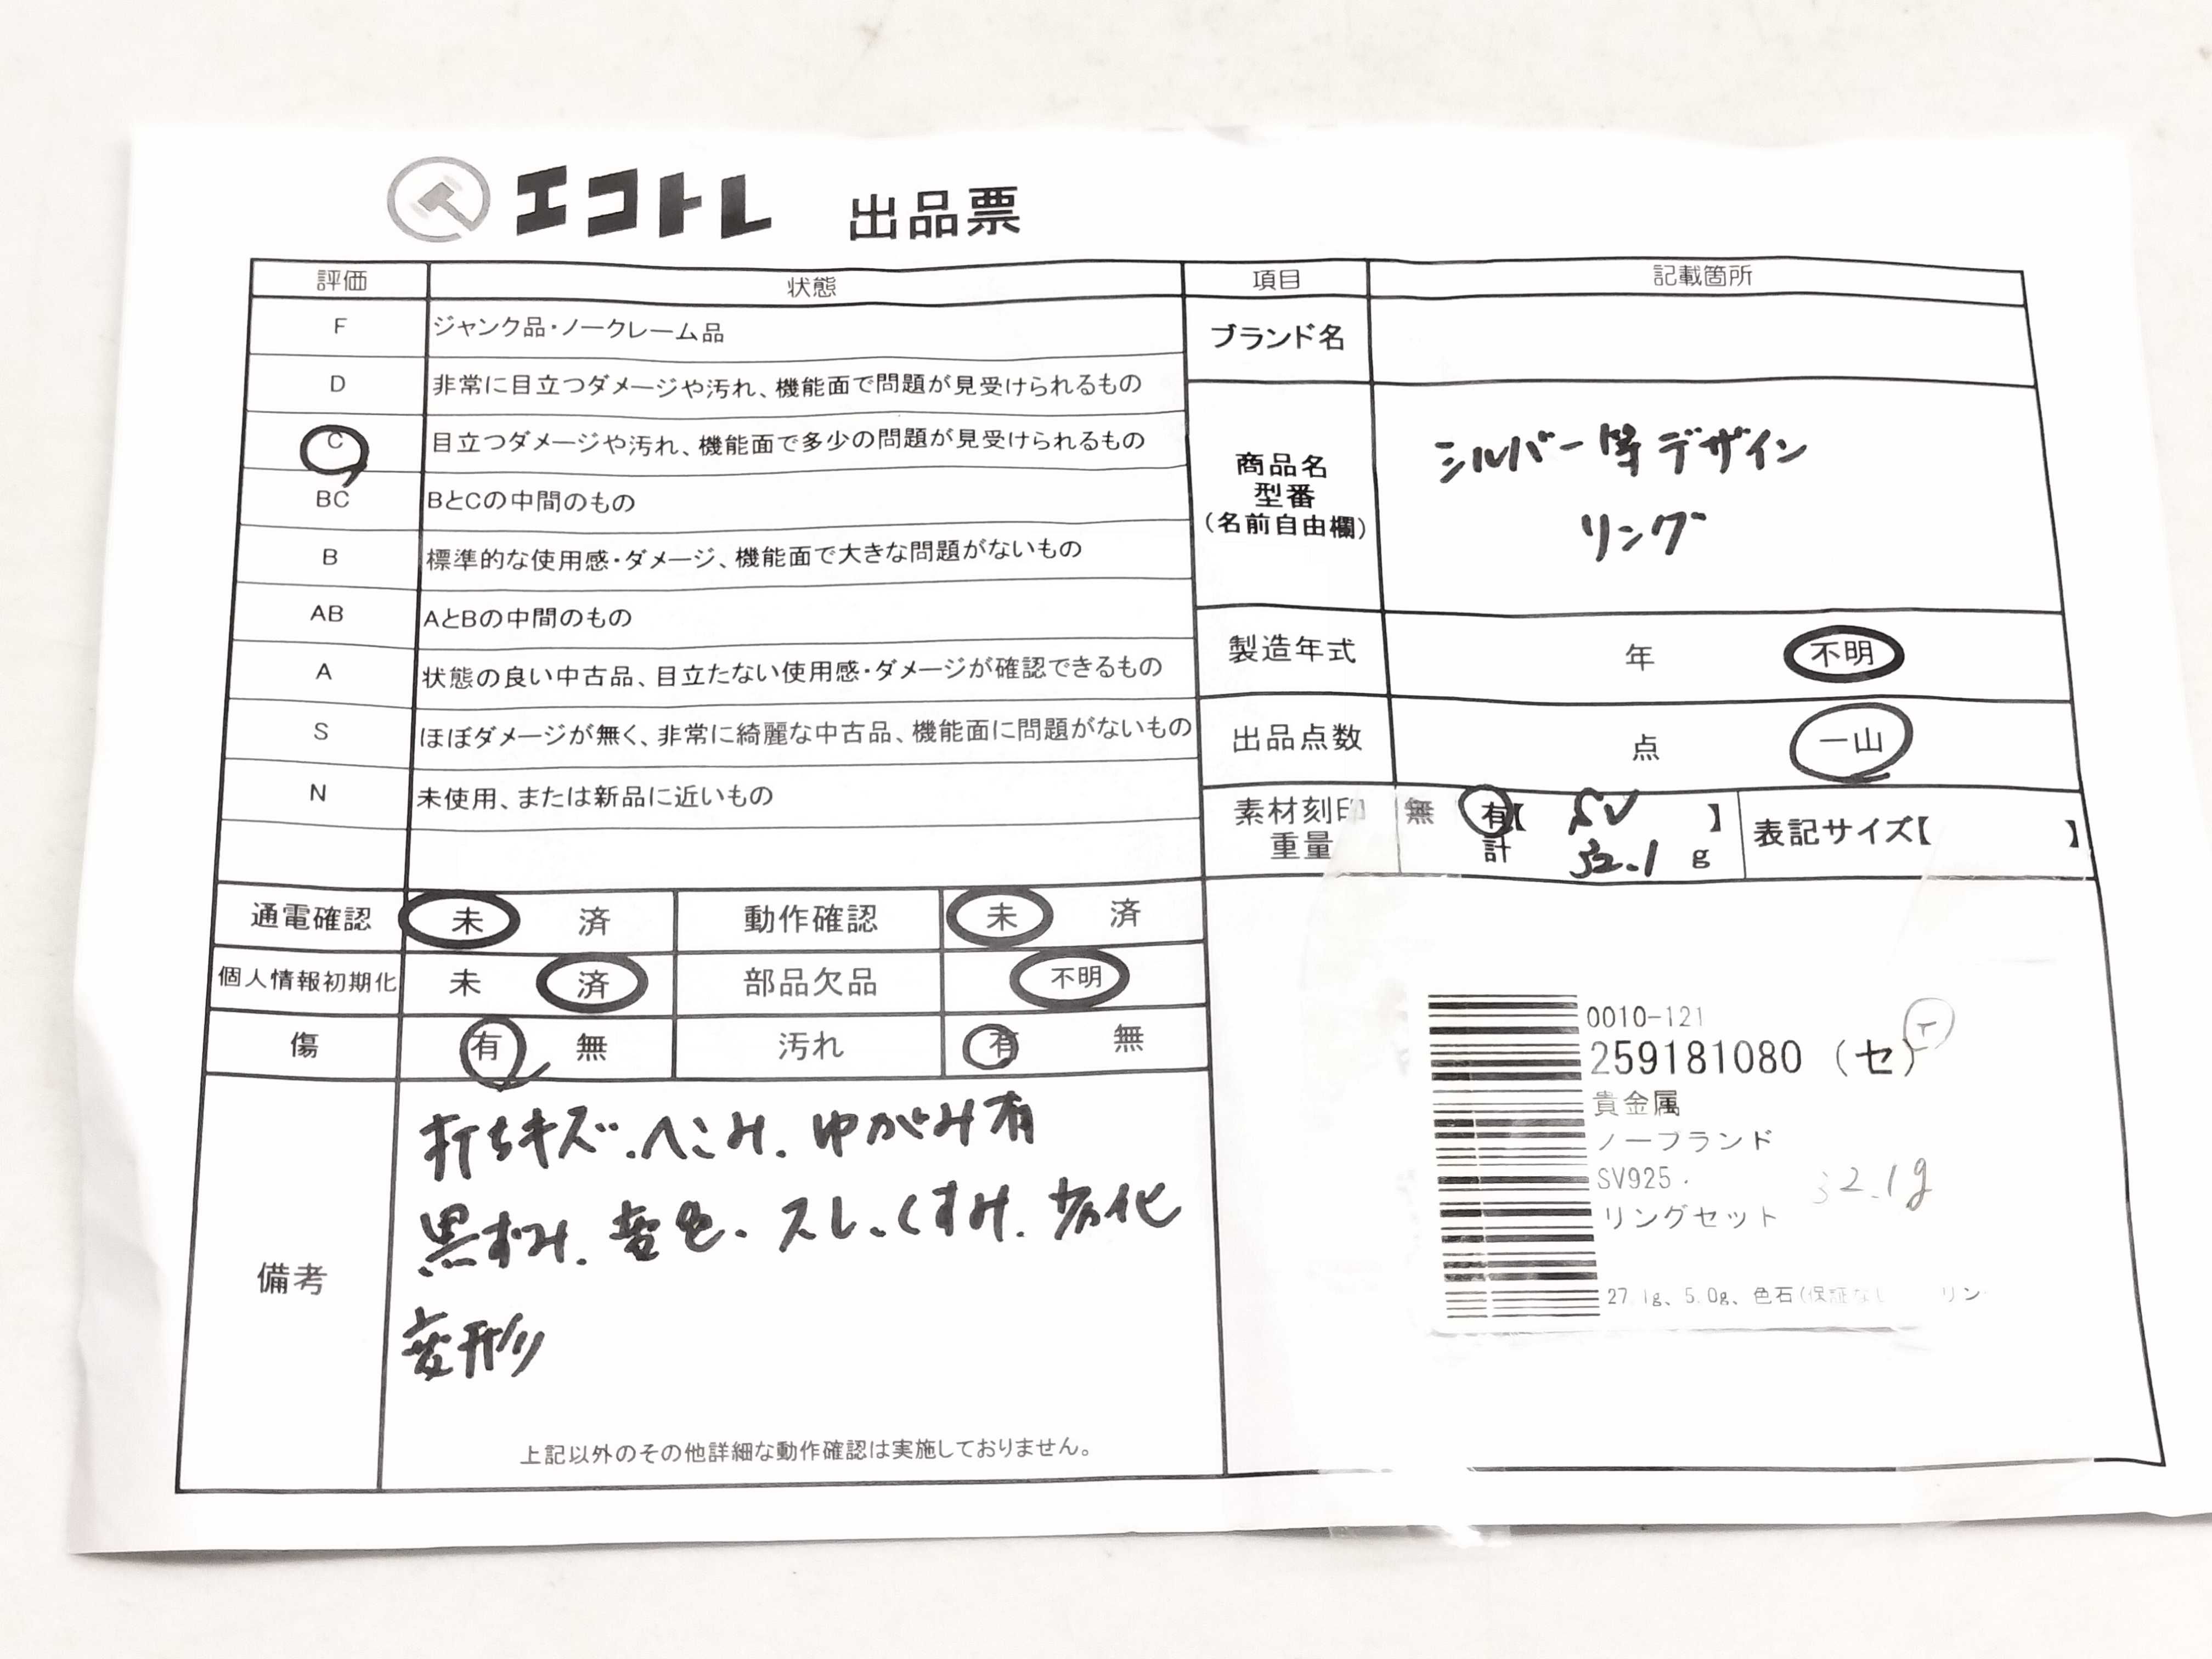 エコトレ 出品票
評価 状態 項目 記載箇所
F ジャンク品・ノークレーム品
D 非常に目立つダメージや汚れ、機能面で問題が見受けられるもの
C 目立つダメージや汚れ、機能面で多少の問題が見受けられるもの
BC BとCの中間のもの
B 標準的な使用感・ダメージ、機能面で大きな問題がないもの
AB AとBの中間のもの
A 状態の良い中古品、目立たない使用感・ダメージが確認できるもの
S ほぼダメージが無く、非常に綺麗な中古品、機能面に問題がないもの
N 未使用、または新品に近いもの
ブランド名
商品名
型番
(名前自由欄)
シルバー等デザイン
リング
製造年式 年 不明
出品点数 点 一山
素材刻印 無 有【 SV 】
重量 計 32.1 g
表記サイズ【 】
通電確認 未 済 動作確認 未 済
個人情報初期化 未 済 部品欠品 不明
傷 有 無 汚れ 有 無
備考
打ちキズ.へこみ.ゆがみ有
黒ずみ.変色.スレ.くすみ.劣化
変形
上記以外のその他詳細な動作確認は実施しておりません。
0010-121
259181080 (セ)
貴金属
ノーブランド
SV925.
32.1g
リングセット
27.1g、5.0g、色石(保証なし リン